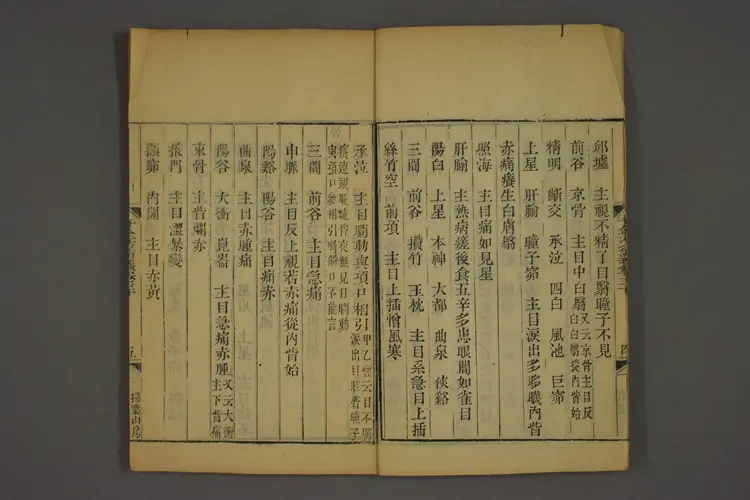 邱墟　主視不精了目翳瞳子不見
前谷　京骨　主目中白翳又云京骨主目反白白翳從內眥始
精明　齗交　承泣　四白　風池　巨窌
上星　肝腧　瞳子窌　主目淚出多眵䁾內眥
赤痛癢生白膚翳
照海　主目痛如見星
肝腧　主熱病瘥後食五辛多患眼闇如雀目
陽白　上星　本神　大都　曲泉　俠谿
三間　前谷　攢竹　玉枕　主目系急目上插
絲竹空　前頂　主目上插憎風寒
承泣　主目瞤動與項口相引甲乙經云目不明淚出目眩瞢瞳子
癢遠視䀮䀮昏夜無見目瞤動與項口參相引喎僻口不能言
三間　前谷　主目急痛
申脈　主目反上視若赤痛從內眥始
陽谿　陽谷　主目痛赤
曲泉　主目赤腫痛
陽谷　太衝　崑崙　主目急痛赤腫又云太衝主下眥痛
束骨　主眥爛赤
掖門　主目澀暴變
顴窌　內關　主目赤黃
四
五
掃葉山房